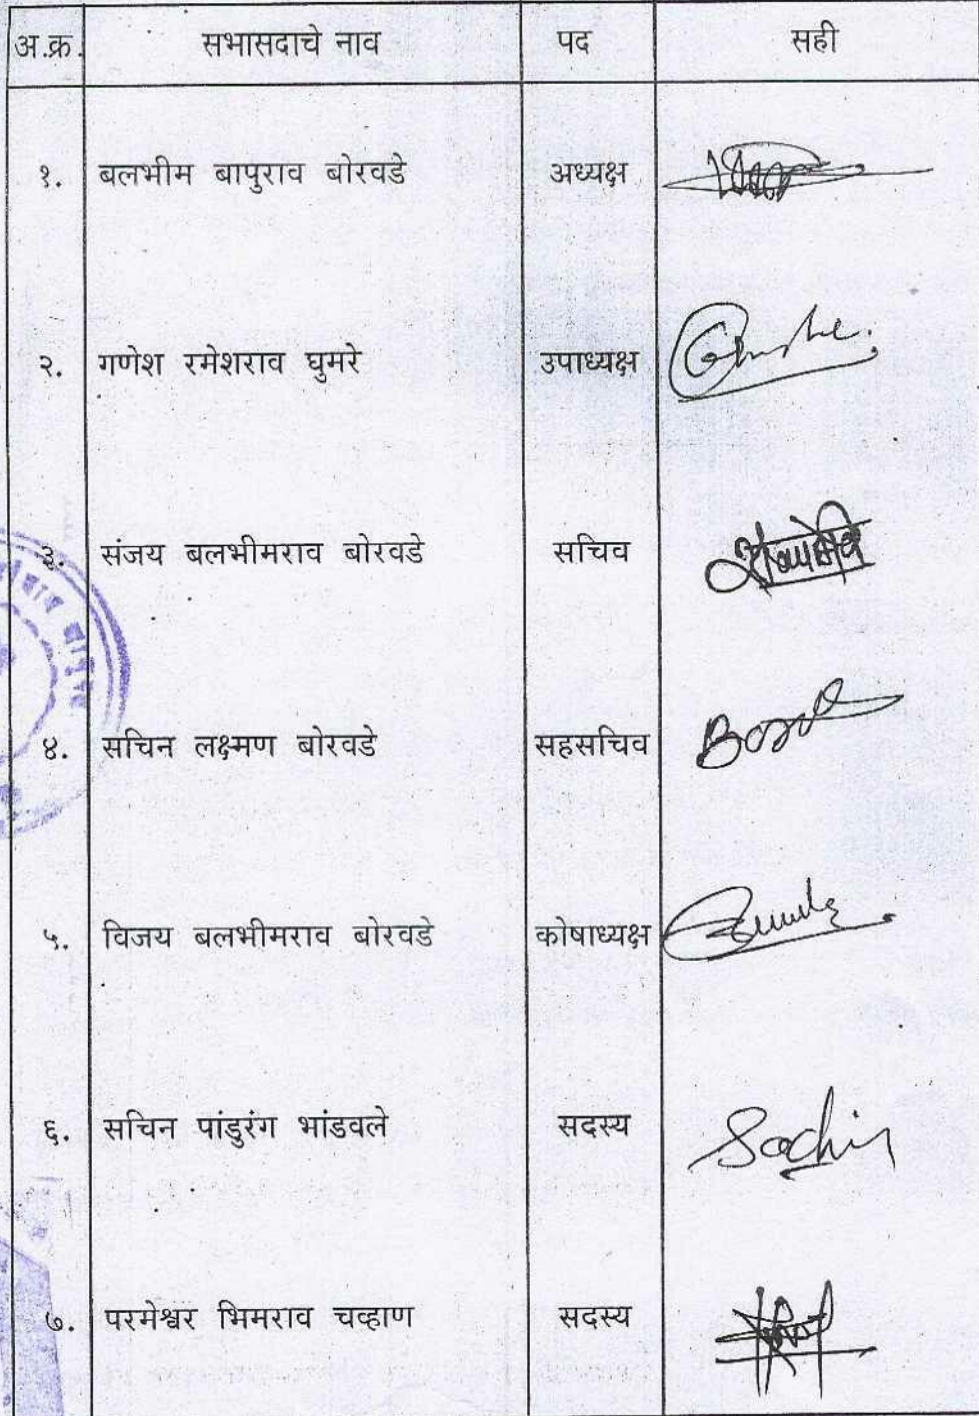 अ.क्र. सभासदाचे नाव पद सही
१. बलभीम बापुराव बोरवडे अध्यक्ष
२. गणेश रमेशराव घुमरे उपाध्यक्ष
३. संजय बलभीमराव बोरवडे सचिव
४. सचिन लक्ष्मण बोरवडे सहसचिव
५. विजय बलभीमराव बोरवडे कोषाध्यक्ष
६. सचिन पांडुरंग भांडवले सदस्य Sachin
७. परमेश्वर भिमराव चव्हाण सदस्य